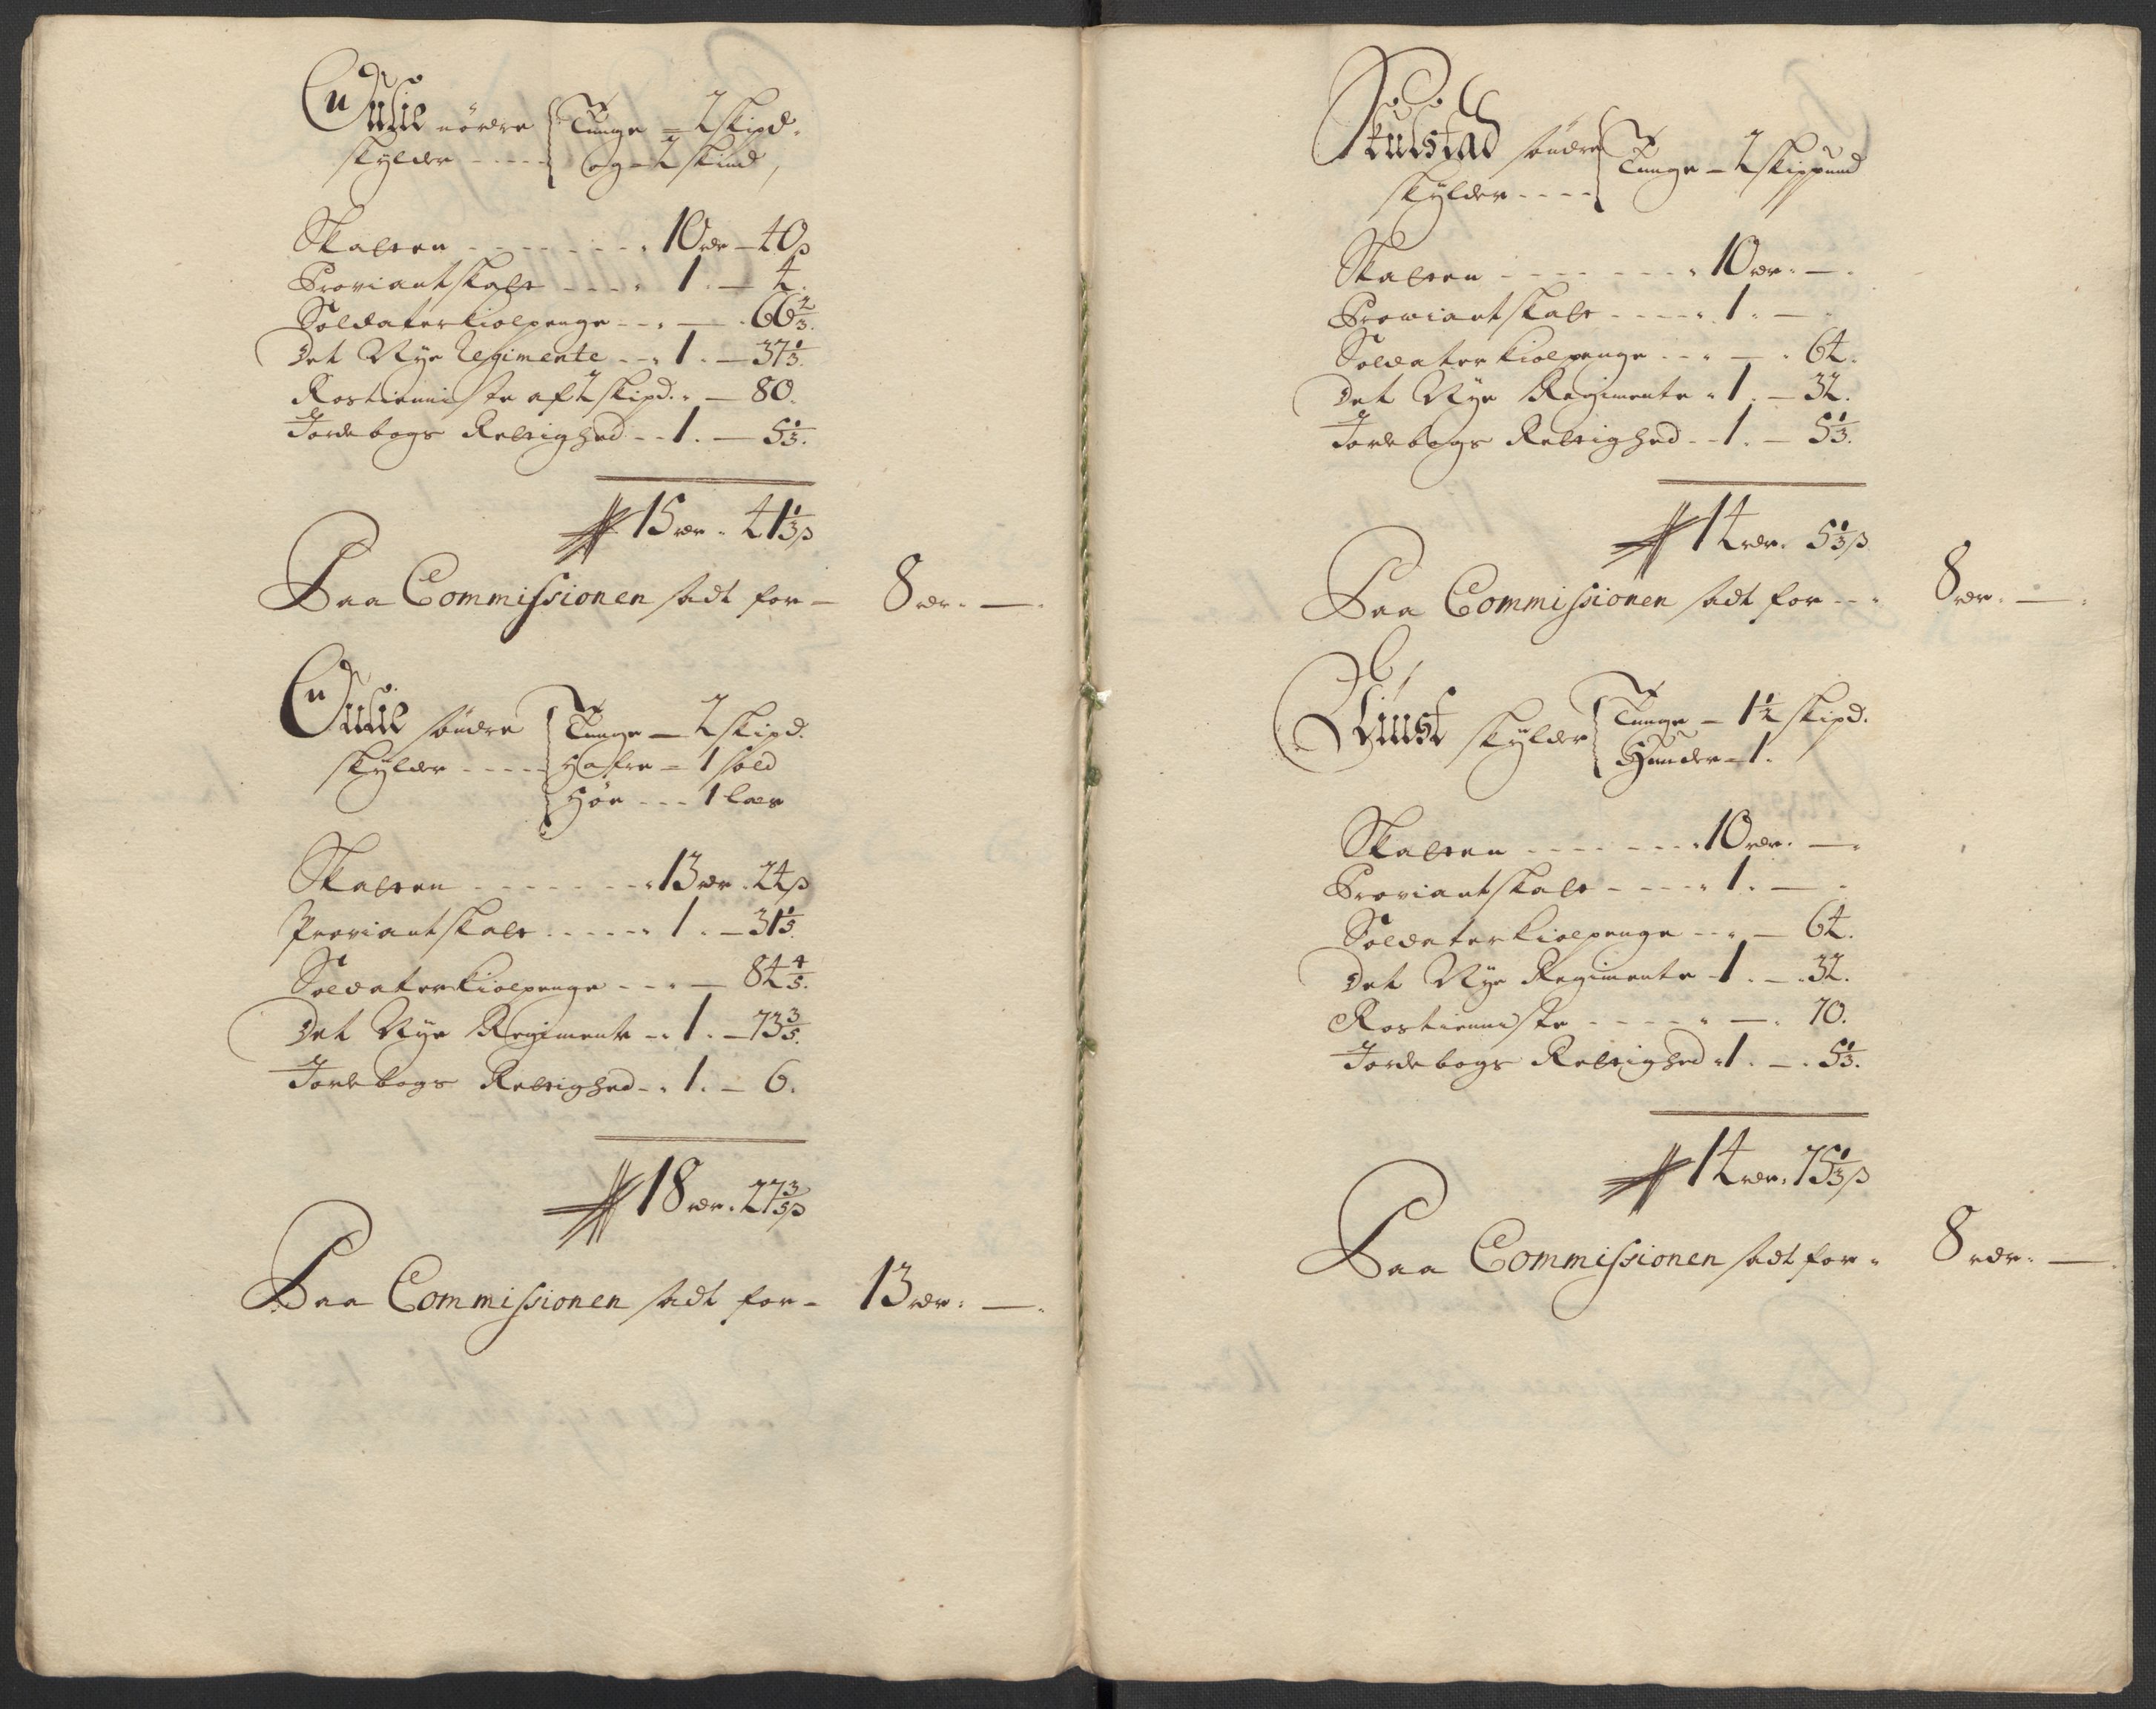 nördre Tunge = 2 skipd.
skylder - - - - og - 2 skind,
Skatten - - - - - - - 10 rdr - 40 ß
Proviantskatt - - - - 1. - 4.
Soldaterkiolpenge - - . - . 66 2/3.
Det Nye Regimente - - . 1. - 37 1/3.
Rostienniste af 2 skipd. . - 80.
Jordebogs Rettighed - - 1. - 5 1/3.
15 rdr. 41 1/3 ß
Paa Commissionen sadt for - 8 rdr. -.
söndre Tunge - 2 skipd.
skylder - - - - Hafre = 1 sold
Höe - - - 1 læs
Skatten - - - - - - - 13 rdr. 24 ß
Proviantskatt - - - - - 1. - 31 1/5.
Soldaterkiolpenge - - . - 84 4/5.
Det Nye Regimente - . 1. - 73 3/5.
Jordebogs Rettighed - . 1. - 6.
18 rdr. 27 3/5 ß
Paa Commissionen sadt for - 13 rdr. -.
Skulstad söndre Tunge - 2 skippund
skylder - - - -
Skatten - - - - - - - 10 rdr. -.
Prowiantskatt - - - - . 1. -
Soldaterkiolpenge - - . - . 64.
Det Nye Regimente . 1. - 32.
Jordebogs Rettighed - - 1. - 5 1/3.
14 rdr. 5 1/3 ß
Paa Commissionen sadt for - - . 8 rdr. -.
skylder Tunge - 1 1/2 skipd.
Huuder - 1.
Skatten - - - - - - - 10 rdr. -.
Proviantskatt - - - - . 1. -
Soldaterkiolpenge - - . - 64.
Det Nye Regimente - 1. -. 32.
Rostienniste - - - - . - . 70.
Jordebogs Rettighed . 1. -. 5 1/3.
14 rdr. 75 1/3 ß
Paa Commissionen sadt for . 8 rdr. -.